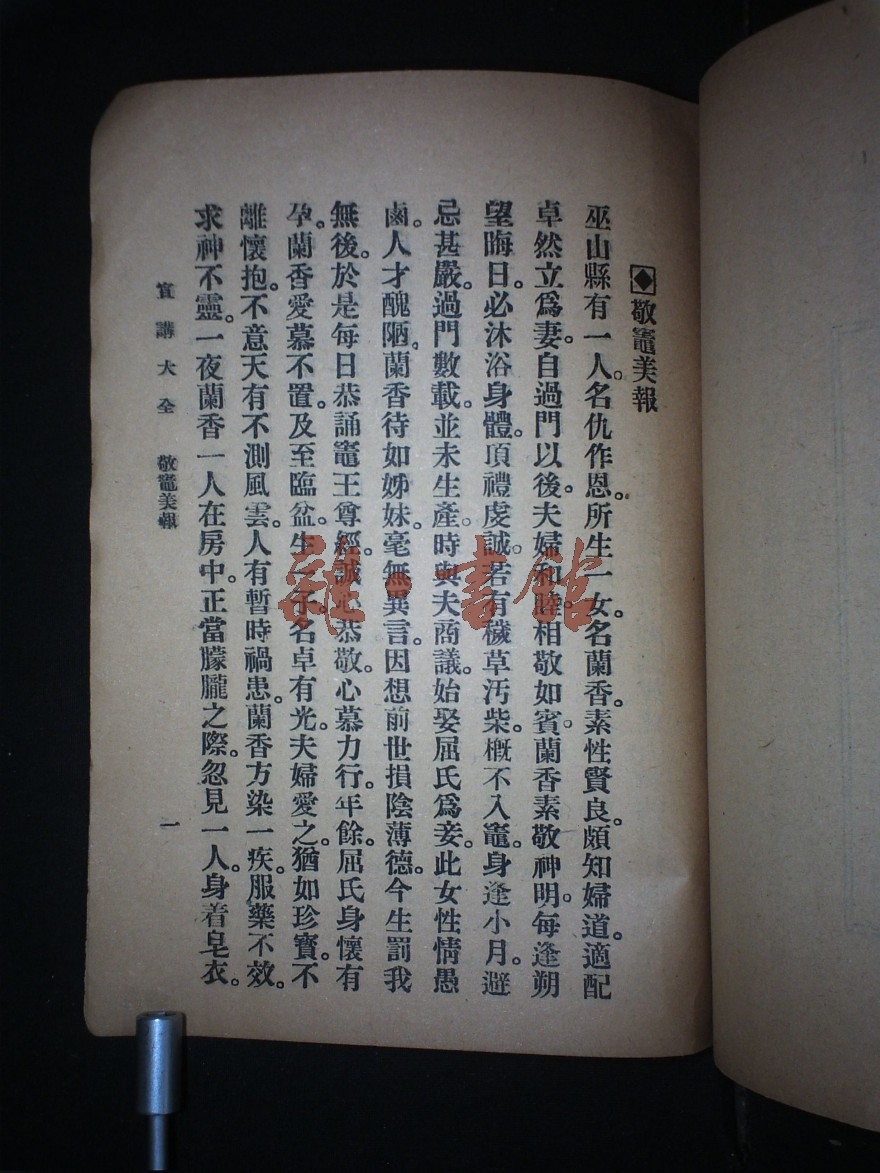 ◆敬竈美報
巫山縣有一人。名仇作恩。所生一女。名蘭香。素性賢良。頗知婦道。適配
卓然立爲妻。自過門以後。夫婦和睦。相敬如賓。蘭香素敬神明。每逢朔
望晦日。必沐浴身體。頂禮虔誠。若有穢草汚柴。槪不入竈。身逢小月。避
忌甚嚴。過門數載。並未生產。時與夫商議。始娶屈氏爲妾。此女性情愚
鹵。人才醜陋。蘭香待如姊妹。毫無異言。因想前世損陰薄德。今生罰我
無後。於是每日恭誦竈王尊經。誠心恭敬。心慕力行。年餘。屈氏身懷有
孕。蘭香愛慕不置。及至臨盆。生一子。名卓有光。夫婦愛之。猶如珍寶。不
離懷抱。不意天有不測風雲。人有暫時禍患。蘭香方染一疾。服藥不效。
求神不靈。一夜蘭香一人在房中。正當朦朧之際。忽見一人。身着皂衣。
宣講大全 敬竈美報 一
雜·書館